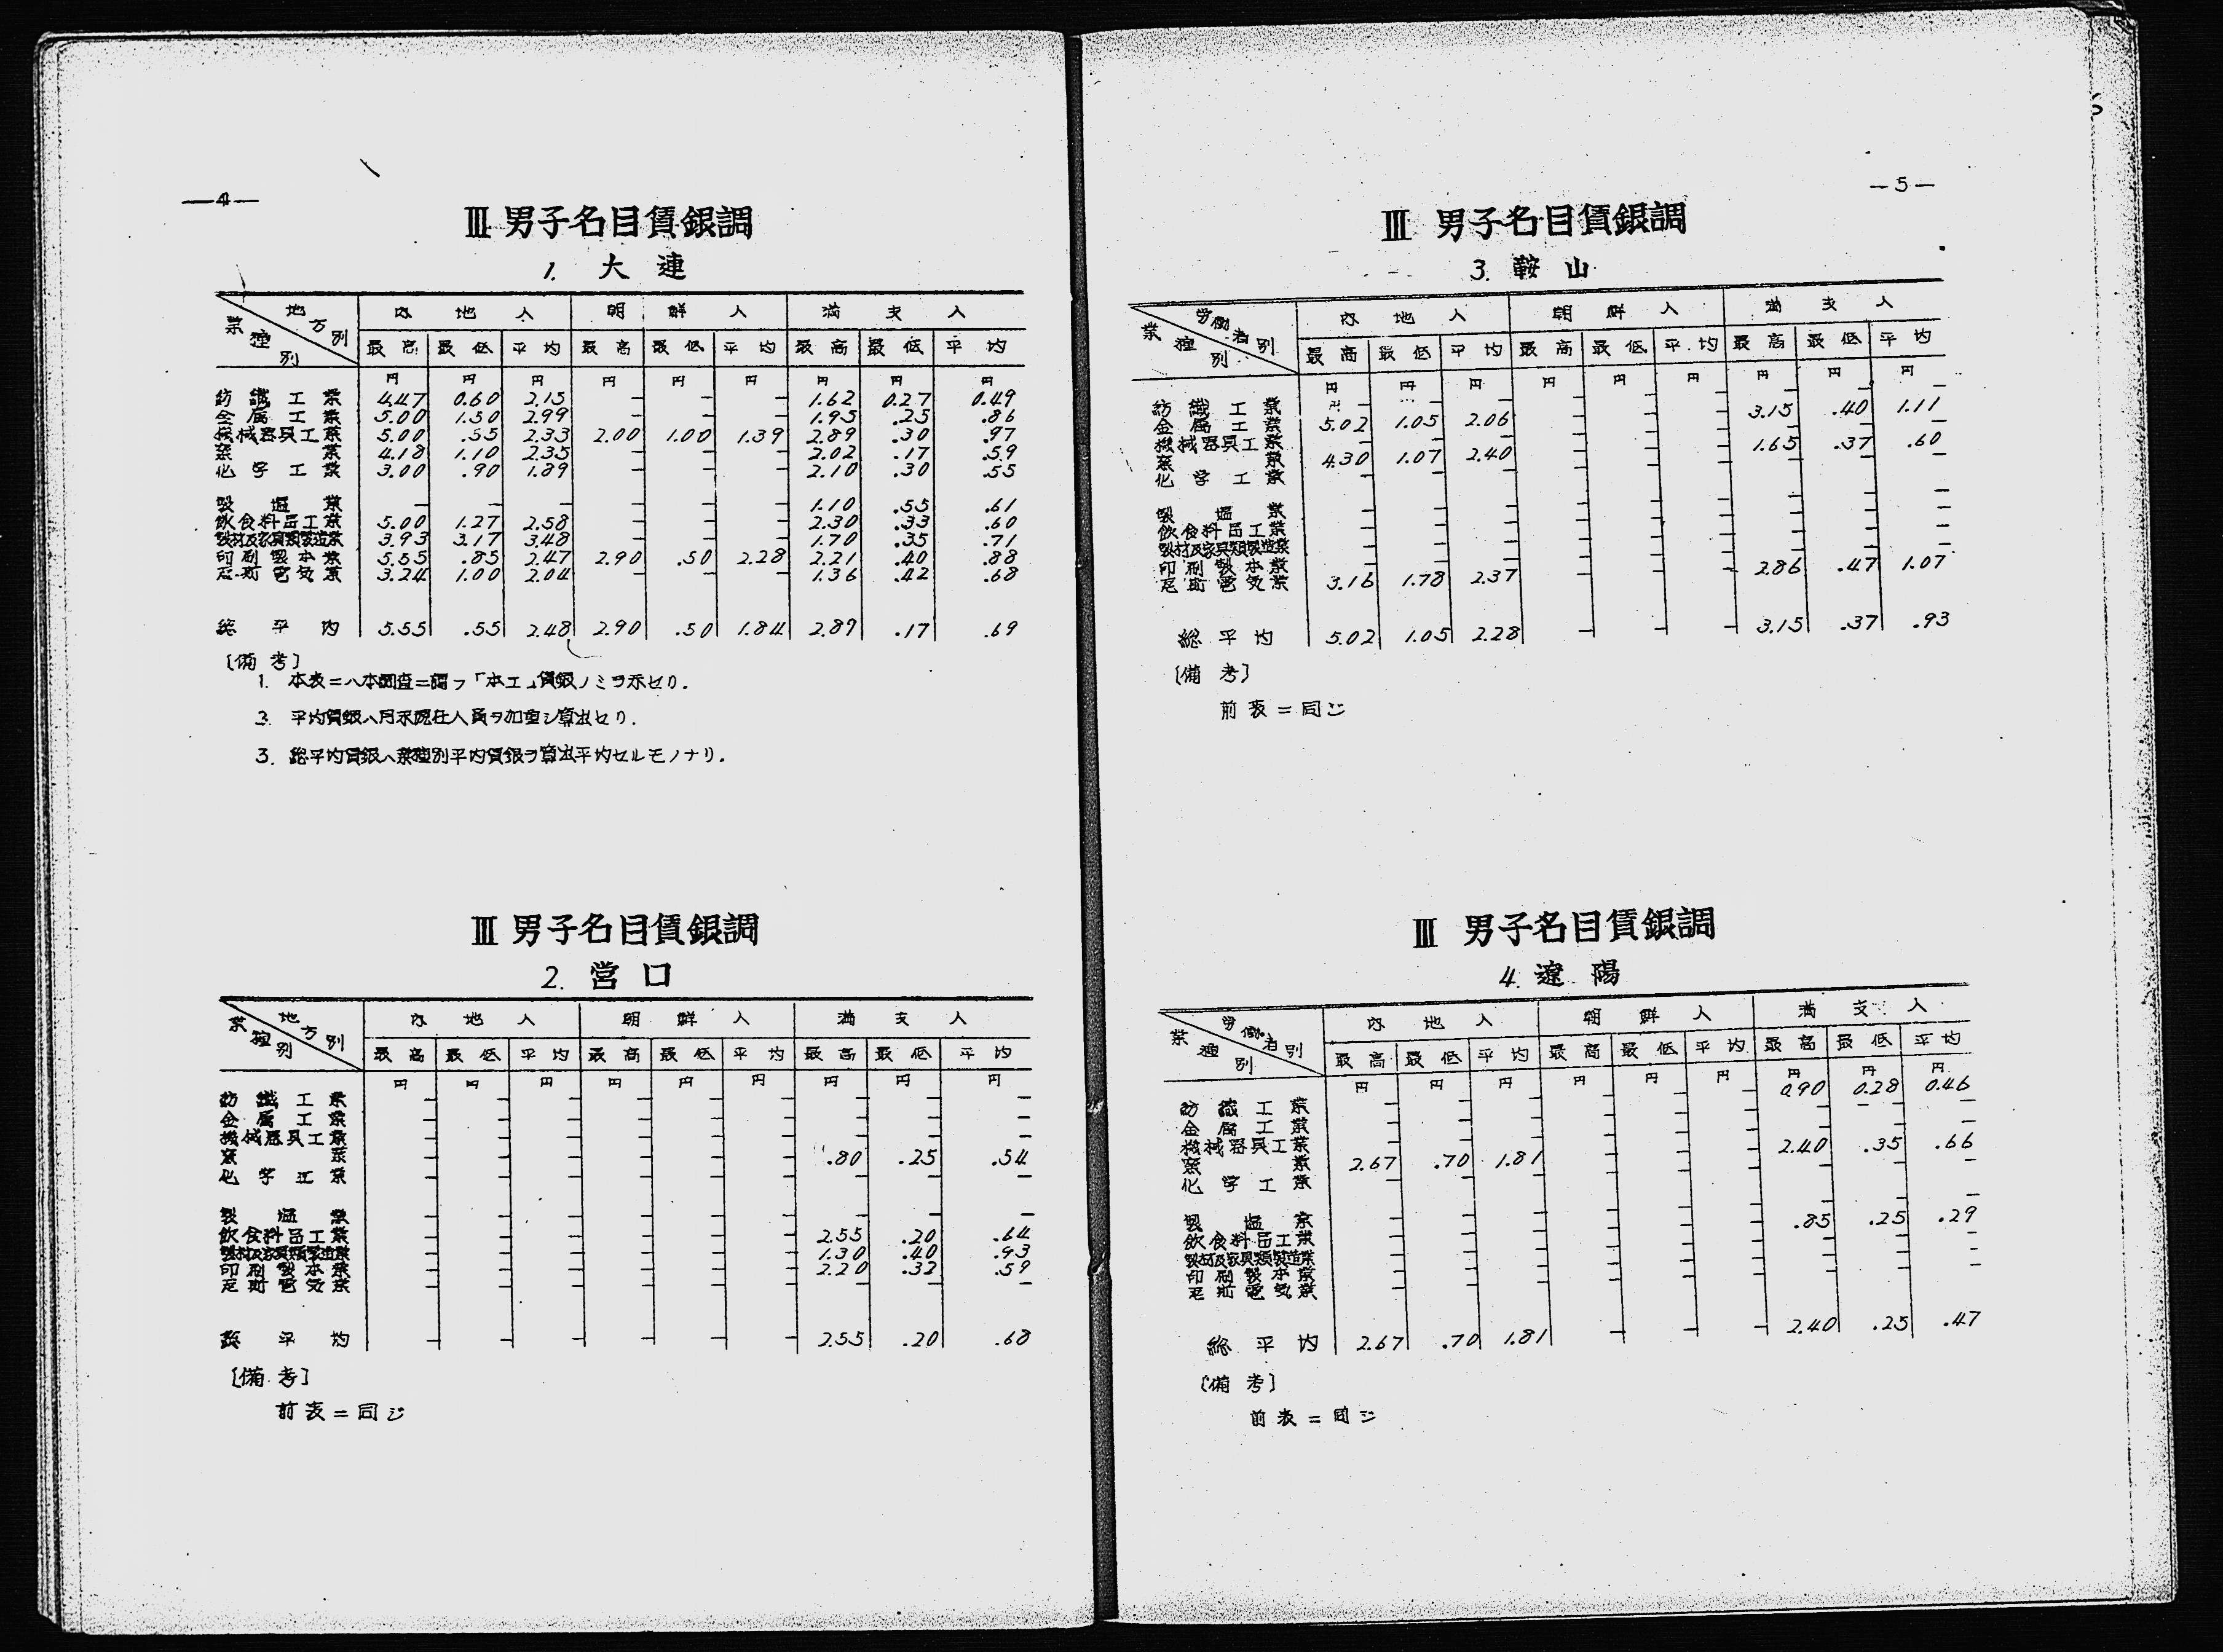 —4—
III 男子名目賃銀調
1. 大連
業種別 地方別 内地人 朝鮮人 満支人
最高 最低 平均 最高 最低 平均 最高 最低 平均
円 円 円 円 円 円 円 円 円
紡織工業 4.47 0.60 2.15 — — — 1.62 0.27 0.49
金属工業 5.00 1.50 2.99 — — — 1.95 .25 .86
機械器具工業 5.00 .55 2.33 2.00 1.00 1.39 2.89 .30 .97
窯業 4.18 1.10 2.35 — — — 2.02 .17 .59
化学工業 3.00 .90 1.89 — — — 2.10 .30 .55
製塩業 — — — — — — 1.10 .55 .61
飲食料品工業 5.00 1.27 2.58 — — — 2.30 .33 .60
製材及家具類製造業 3.93 3.17 3.48 — — — 1.70 .35 .71
印刷製本業 5.55 .85 2.47 2.90 .50 2.28 2.21 .40 .88
瓦斯電気業 3.24 1.00 2.04 — — — 1.36 .42 .68
総平均 5.55 .55 2.48 2.90 .50 1.84 2.89 .17 .69
〔備考〕
1. 本表ニハ本調査ニ謂フ「本工」賃銀ノミヲ示セリ.
2. 平均賃銀ハ月末現在人員ヲ加重シ算出セリ.
3. 総平均賃銀ハ業種別平均賃銀ヲ算出平均セルモノナリ.
III 男子名目賃銀調
2. 営口
業種別 地方別 内地人 朝鮮人 満支人
最高 最低 平均 最高 最低 平均 最高 最低 平均
円 円 円 円 円 円 円 円 円
紡織工業 — — — — — — — — —
金属工業 — — — — — — — — —
機械器具工業 — — — — — — — — —
窯業 — — — — — — .80 .25 .54
化学工業 — — — — — — — — —
製塩業 — — — — — — — — —
飲食料品工業 — — — — — — 2.55 .20 .64
製材及家具類製造業 — — — — — — 1.30 .40 .93
印刷製本業 — — — — — — 2.20 .32 .59
瓦斯電気業 — — — — — — — — —
総平均 — — — — — — 2.55 .20 .68
〔備考〕
前表ニ同ジ
—5—
III 男子名目賃銀調
3. 鞍山
業種別 労働者別 内地人 朝鮮人 満支人
最高 最低 平均 最高 最低 平均 最高 最低 平均
円 円 円 円 円 円 円 円 円
紡織工業 — — — — — — — — —
金属工業 5.02 1.05 2.06 — — — 3.15 .40 1.11
機械器具工業 — — — — — — — — —
窯業 4.30 1.07 2.40 — — — 1.65 .37 .60
化学工業 — — — — — — — — —
製塩業 — — — — — — — — —
飲食料品工業 — — — — — — — — —
製材及家具類製造業 — — — — — — — — —
印刷製本業 — — — — — — — — —
瓦斯電気業 3.16 1.78 2.37 — — — 2.86 .47 1.07
総平均 5.02 1.05 2.28 — — — 3.15 .37 .93
〔備考〕
前表ニ同ジ
III 男子名目賃銀調
4. 遼陽
業種別 労働者別 内地人 朝鮮人 満支人
最高 最低 平均 最高 最低 平均 最高 最低 平均
円 円 円 円 円 円 円 円 円
紡織工業 — — — — — — 0.90 0.28 0.46
金属工業 — — — — — — — — —
機械器具工業 — — — — — — — — —
窯業 2.67 .70 1.81 — — — 2.40 .35 .66
化学工業 — — — — — — — — —
製塩業 — — — — — — — — —
飲食料品工業 — — — — — — .85 .25 .29
製材及家具類製造業 — — — — — — — — —
印刷製本業 — — — — — — — — —
瓦斯電気業 — — — — — — — — —
総平均 2.67 .70 1.81 — — — 2.40 .25 .47
〔備考〕
前表ニ同ジ